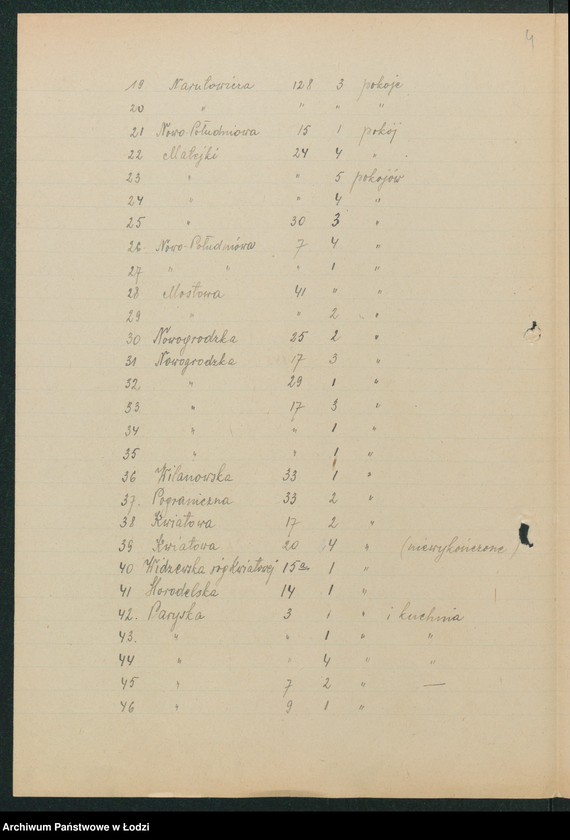 4
19 Narutowicza 128 3 pokoje
20 " " " "
21 Nowo Południowa 15 1 pokój
22 Matejki 24 4 "
23 " " 5 pokojów
24 " " 4 "
25 " 30 3 "
26 Nowo-Południowa 7 4 "
27 " " " 1 "
28 Mostowa 41 " "
29 " " 2 "
30 Nowogrodzka 25 2 "
31 Nowogrodzka 17 3 "
32 " 29 1 "
33 " 17 3 "
34 " " 1 "
35 " " 1 "
36 Wilanowska 33 1 "
37. Pograniczna 33 2 "
38 Kwiatowa 17 2 "
39 Kwiatowa 20 4 " (niewykończone)
40 Widzewska róg Kwiatowej 15 1 "
41 Horodelska 14 1 "
42. Paryska 3 1 " i kuchnia
43. " " 1 " "
44 " " 4 " "
45 " 7 2 " —
46 " 9 1 "
Archiwum Państwowe w Łodzi